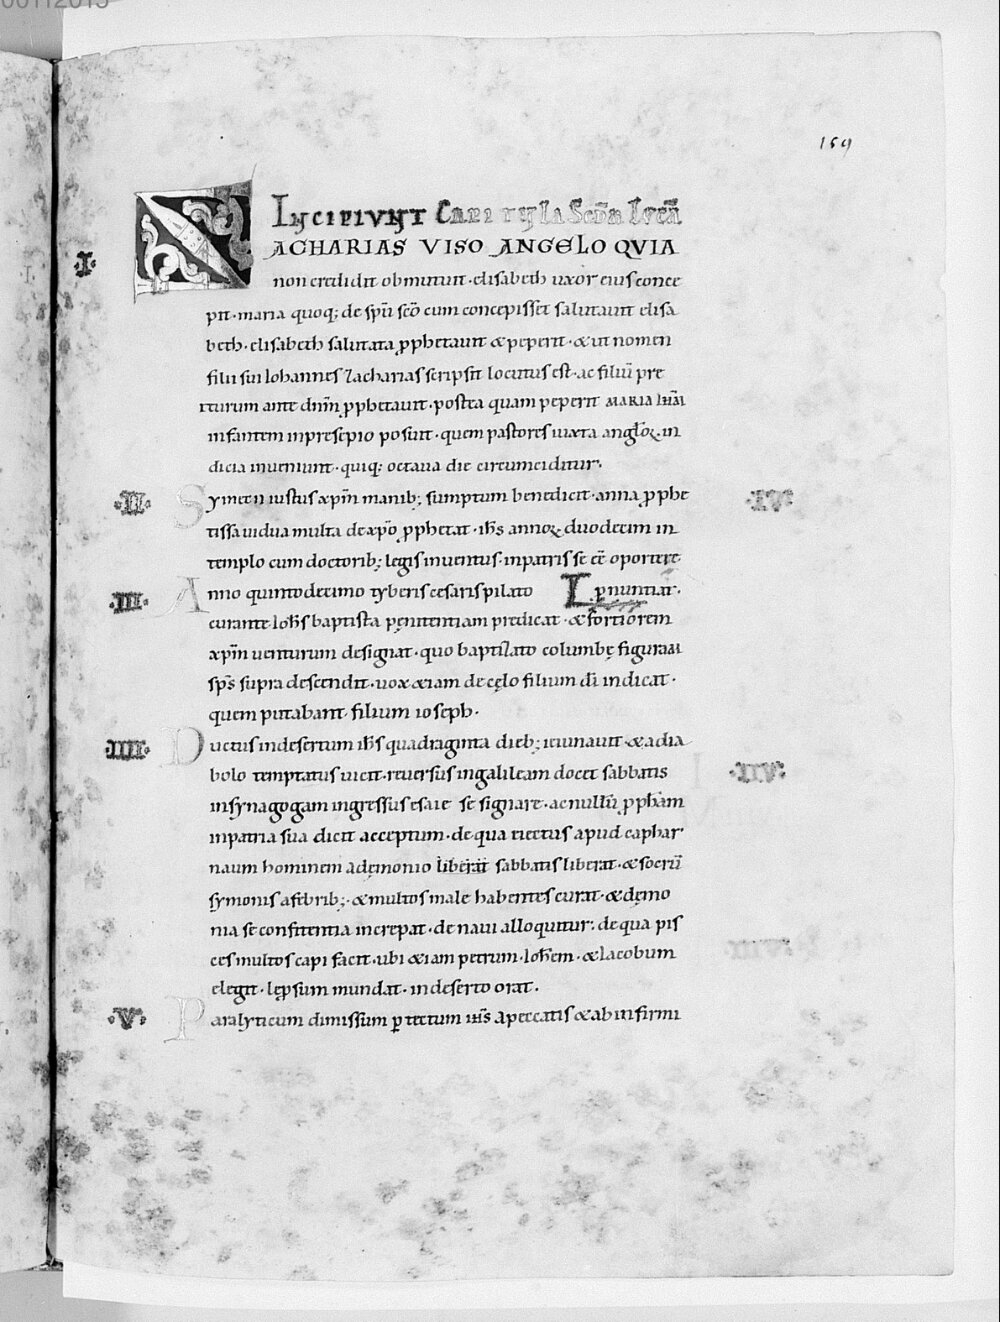 159
INCIPIUNT CAPITULA SCDM LUCA
I. ZACHARIAS VISO ANGELO QVIA
non credidit obmutuit· elisabeth uxor eius conce
pit· maria quoq; de spū scō cum concepisset salutauit elisa
beth· elisabeth salutata p̱phetauit & peperit· & ut nomen
filii sui Iohannes Zacharias scripsit locutus est· ac filiū pre
iturum ante dnm̄ p̱phetauit· postea quam peperit MARIA IHM̄
infantem in presepio posuit· quem pastores iuxta anglōꝝ in
dicia inueniunt· quiq; octaua die circumciditur·
·II· Symeon iustus xp̄m manib; sumptum benedicit· anna p̱phe
tissa uidua multa de xp̄o p̱phetat· ihs̄ annoꝝ duodecim in
templo cum doctorib; legis inuentus· in patris se ēē oportere
·III· Anno quinto decimo tyberis cesaris pilato L p̱nuntiat·
curante Iohs̄ baptista pęnitentiam predicat· & fortiorem
xp̄m uenturum designat· quo baptizato columbę figuram
sps̄ supra descendit· uox etiam de cęlo filium dī indicat·
quem putabant filium ioseph·
·IIII· Ductus in desertum ihs̄ quadraginta dieb; ieiunauit· & a dia
bolo temptatus uicit· reuersus in galileam docet sabbatis
in synagogam ingressus esaie se signare· ac nullū p̱phām
in patria sua dicit acceptum· de qua eiectus apud caphar
naum hominem a demonio liberat sabbatis liberat· & socrū
symonis a febrib;· & multos male habentes curat· & demo
nia se confitentia increpat· de naui alloquitur· de qua pis
ces multos capi facit· ubi etiam petrum· Iohēm· & Iacobum
elegit· leprosum mundat· in deserto orat·
·V· Paralyticum dimissum p̱ tectum ihs̄ a peccatis & ab infirmi